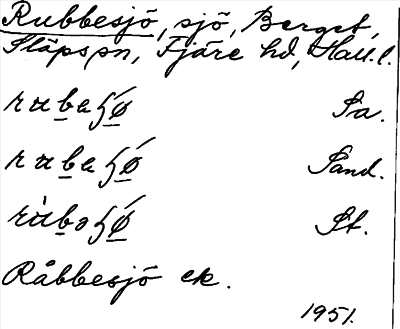 Rubbesjö, sjö, Berget,
Släpps sn, Fjäre hd, Hall. l.
rubeɧǿ Sa.
rubeɧǿ Sand.
rùbəɧǿ St.
Råbbesjö ek.
1951.